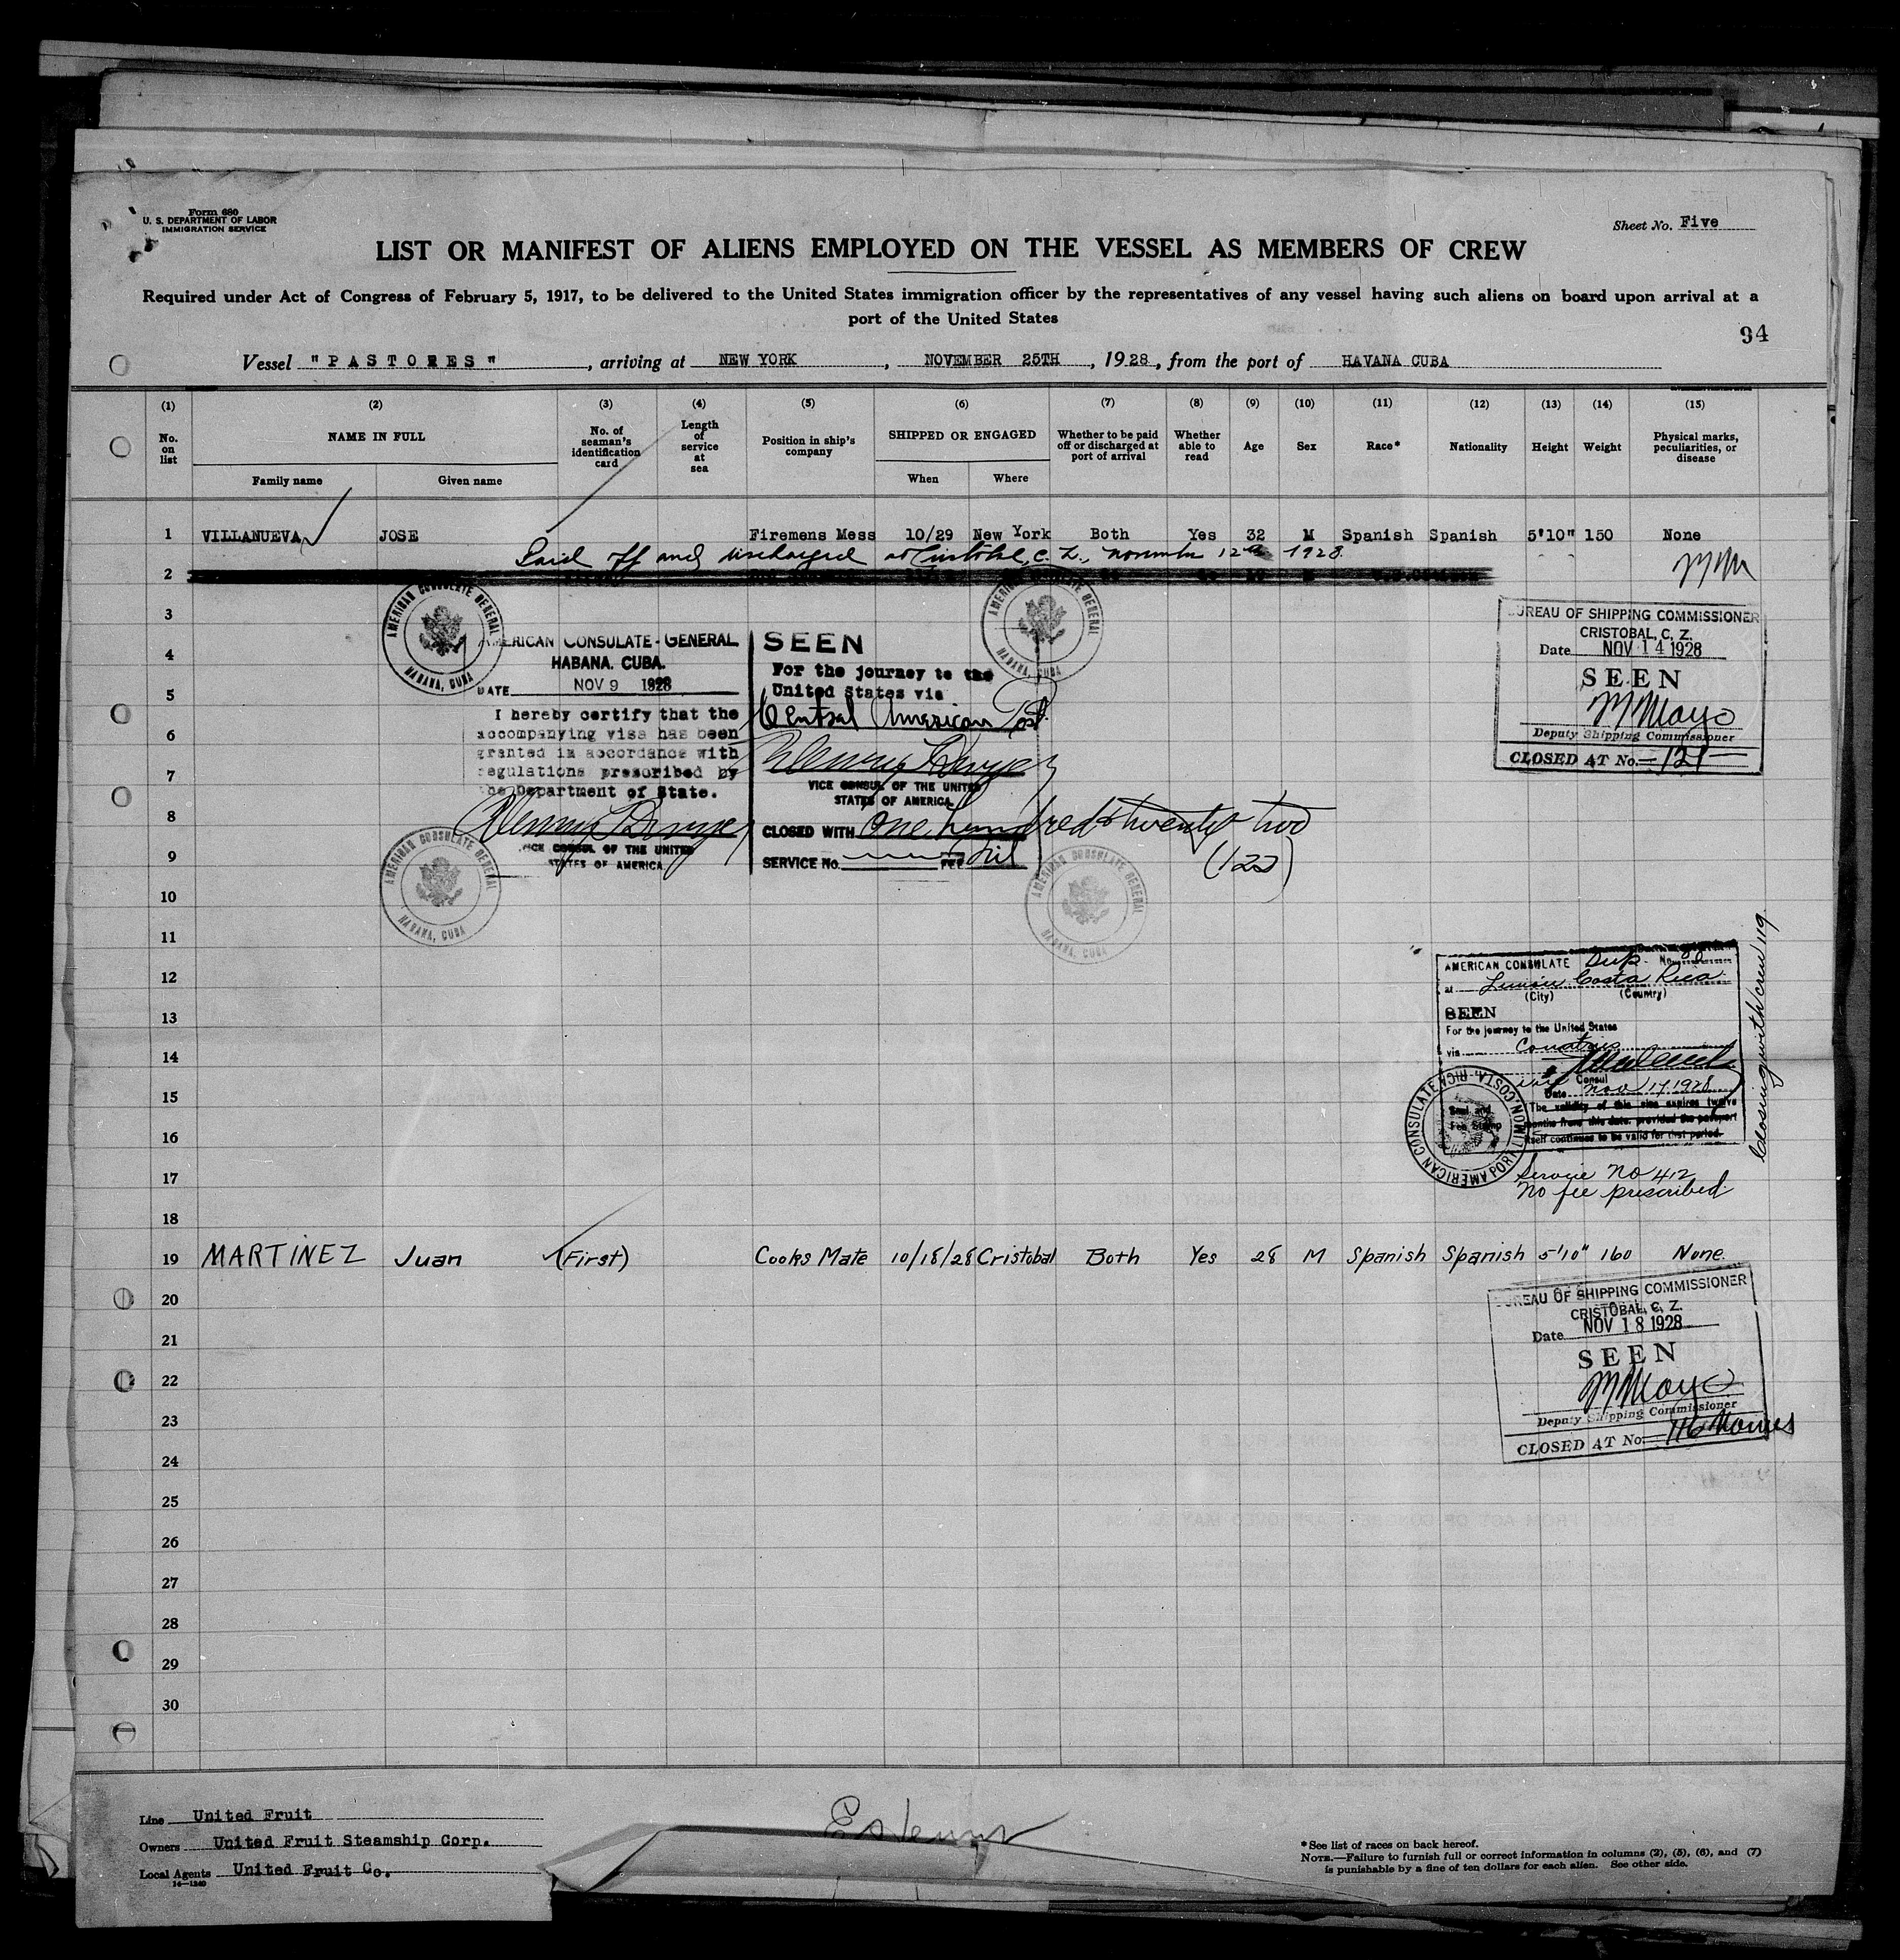 Form 680
U. S. DEPARTMENT OF LABOR
IMMIGRATION SERVICE
Sheet No. Five
LIST OR MANIFEST OF ALIENS EMPLOYED ON THE VESSEL AS MEMBERS OF CREW
Required under Act of Congress of February 5, 1917, to be delivered to the United States immigration officer by the representatives of any vessel having such aliens on board upon arrival at a
port of the United States
94
Vessel "PASTORES", arriving at NEW YORK, NOVEMBER 25TH, 1928, from the port of HAVANA CUBA
(1) (2) (3) (4) (5) (6) (7) (8) (9) (10) (11) (12) (13) (14) (15)
No. on list NAME IN FULL No. of seaman's identification card Length of service at sea Position in ship's company SHIPPED OR ENGAGED Whether to be paid off or discharged at port of arrival Whether able to read Age Sex Race* Nationality Height Weight Physical marks, peculiarities, or disease
Family name Given name When Where
1 VILLANUEVA JOSE Firemens Mess 10/29 New York Both Yes 32 M Spanish Spanish 5'10" 150 None
Paid off and discharged at Cristobal, C. Z., November 12th 1928.
2
3
4
5
6
7
8
9
10
11
12
13
14
15
16
17
18
AMERICAN CONSULATE GENERAL
HABANA, CUBA
AMERICAN CONSULATE-GENERAL
HABANA. CUBA.
DATE NOV 9 1928
I hereby certify that the
accompanying visa has been
granted in accordance with
regulations prescribed by
the Department of State.
VICE CONSUL OF THE UNITED
STATES OF AMERICA
AMERICAN CONSULATE GENERAL
HABANA, CUBA
SEEN
For the journey to the
United States via
Central American Port
VICE CONSUL OF THE UNITED
STATES OF AMERICA.
CLOSED WITH One hundred & twenty two
(122)
SERVICE No. FEE
AMERICAN CONSULATE GENERAL
HABANA, CUBA
AMERICAN CONSULATE GENERAL
HABANA, CUBA
BUREAU OF SHIPPING COMMISSIONER
CRISTOBAL, C. Z.
Date NOV 14 1928
SEEN
M Mayo
Deputy Shipping Commissioner
CLOSED AT No. 121
AMERICAN CONSULATE Dup. No.
at Limon Costa Rica
(City) (Country)
SEEN
For the journey to the United States
via
Consul
Date Nov 17 1928
The validity of this visa expires twelve
months from this date. provided the passport
itself continues to be valid for that period.
Seal and
Fee Stamp
AMERICAN CONSULATE PORT LIMON, COSTA RICA
Closing with crew 119
Service No 412
No fee prescribed
19 MARTINEZ Juan (First) Cooks Mate 10/18/28 Cristobal Both Yes 28 M Spanish Spanish 5'10" 160 None.
20
21
22
23
24
25
26
27
28
29
30
BUREAU OF SHIPPING COMMISSIONER
CRISTOBAL, C. Z.
Date NOV 18 1928
SEEN
M Mayo
Deputy Shipping Commissioner
CLOSED AT No. 116 Names
Line United Fruit
Owners United Fruit Steamship Corp.
Local Agents United Fruit Co.
14—1240
*See list of races on back hereof.
NOTE.—Failure to furnish full or correct information in columns (2), (5), (6), and (7)
is punishable by a fine of ten dollars for each alien. See other side.